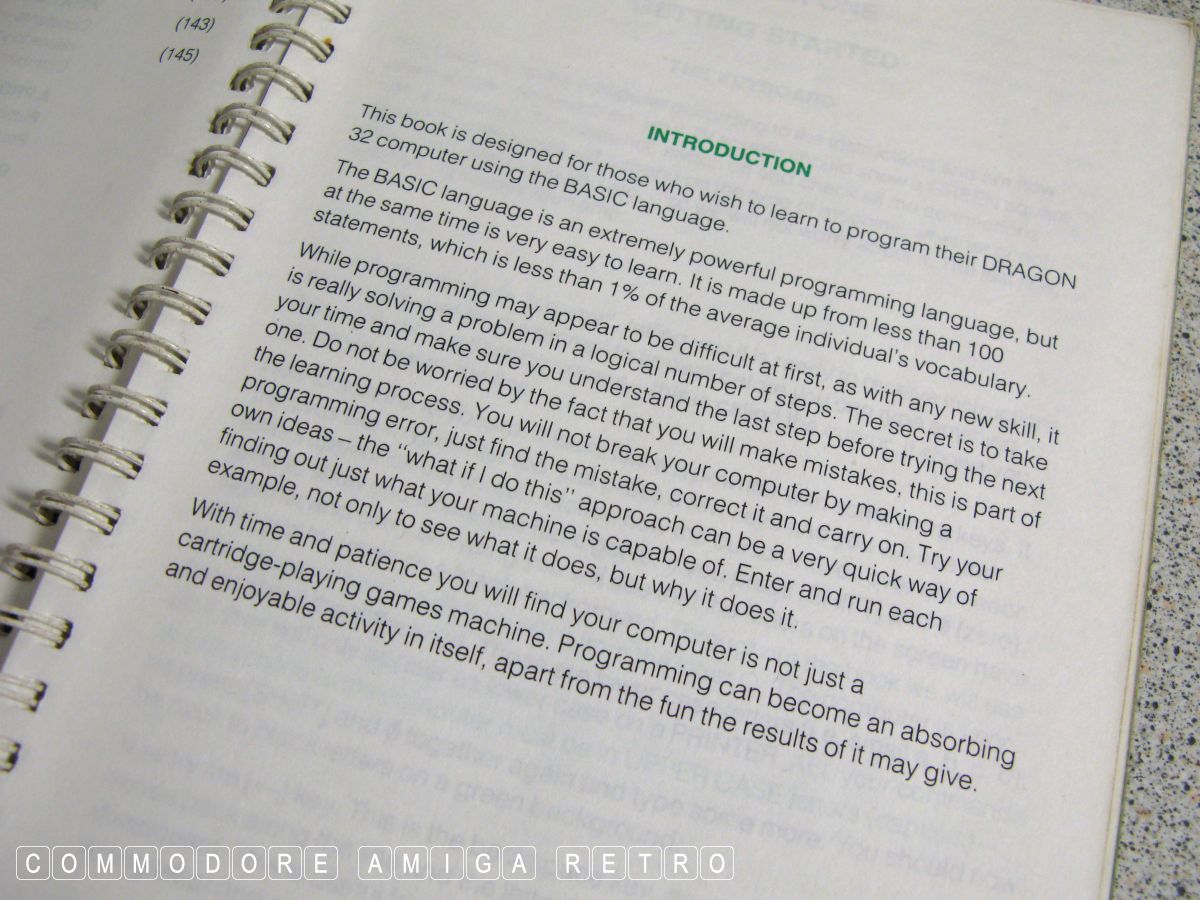 (143)
(145)
INTRODUCTION
This book is designed for those who wish to learn to program their DRAGON
32 computer using the BASIC language.
The BASIC language is an extremely powerful programming language, but
at the same time is very easy to learn. It is made up from less than 100
statements, which is less than 1% of the average individual's vocabulary.
While programming may appear to be difficult at first, as with any new skill, it
is really solving a problem in a logical number of steps. The secret is to take
your time and make sure you understand the last step before trying the next
one. Do not be worried by the fact that you will make mistakes, this is part of
the learning process. You will not break your computer by making a
programming error, just find the mistake, correct it and carry on. Try your
own ideas – the "what if I do this" approach can be a very quick way of
finding out just what your machine is capable of. Enter and run each
example, not only to see what it does, but why it does it.
With time and patience you will find your computer is not just a
cartridge-playing games machine. Programming can become an absorbing
and enjoyable activity in itself, apart from the fun the results of it may give.
COMMODORE AMIGA RETRO